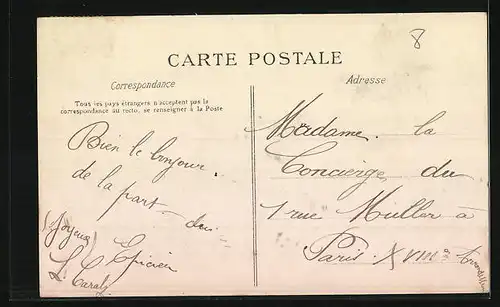 8
CARTE POSTALE
Correspondance
Adresse
Tous les pays étrangers n'acceptent pas la
correspondance au recto, se renseigner à la Poste
Bien le bonjour
de la part du
(Joyeux)
Epicier
Madame la
Concierge du
1 rue Muller à
Paris XVIIIe